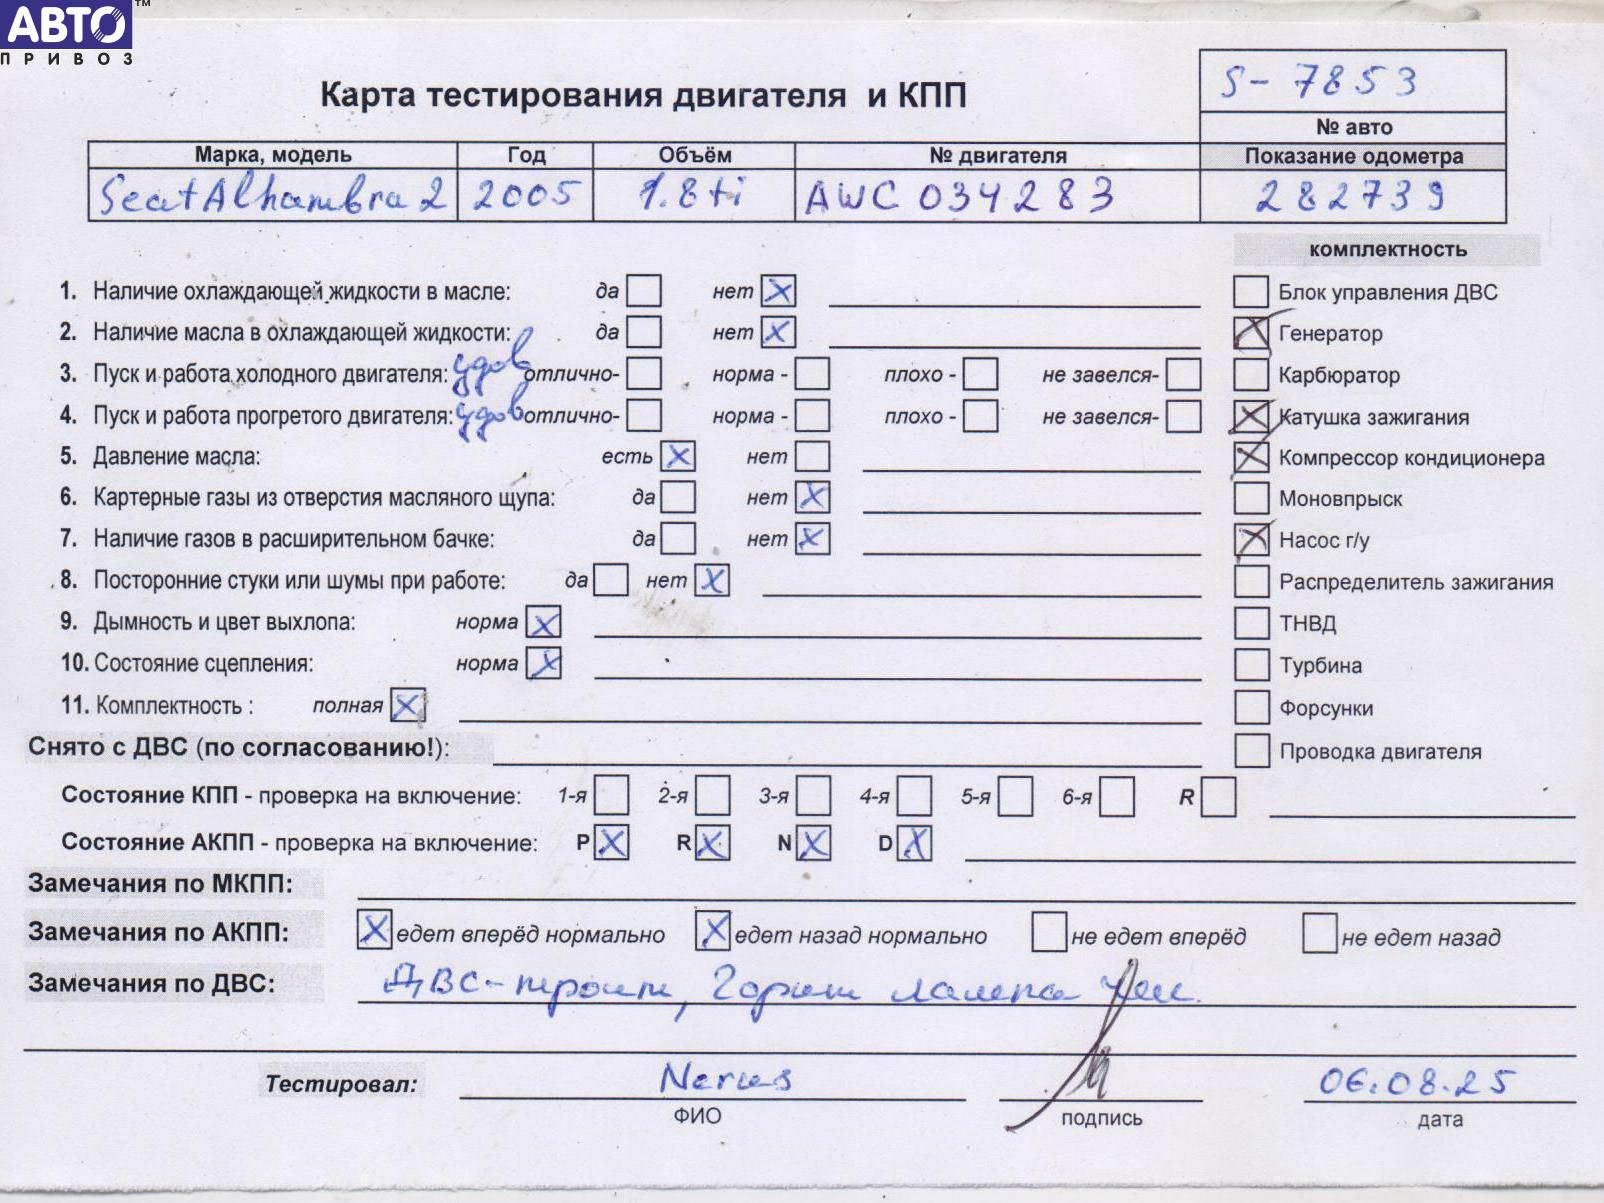 АВТО™
ПРИВОЗ
S-7853
Карта тестирования двигателя и КПП
№ авто
Марка, модель Год Объём № двигателя Показание одометра
Seat Alhambra 2 2005 1.8ti AWC 034283 282739
комплектность
1. Наличие охлаждающей жидкости в масле: да нет X Блок управления ДВС
2. Наличие масла в охлаждающей жидкости: да нет X X Генератор
3. Пуск и работа холодного двигателя: удов отлично- норма - плохо - не завелся- Карбюратор
4. Пуск и работа прогретого двигателя: удов отлично- норма - плохо - не завелся- X Катушка зажигания
5. Давление масла: есть X нет X Компрессор кондиционера
6. Картерные газы из отверстия масляного щупа: да нет X Моновпрыск
7. Наличие газов в расширительном бачке: да нет X X Насос г/у
8. Посторонние стуки или шумы при работе: да нет X Распределитель зажигания
9. Дымность и цвет выхлопа: норма X ТНВД
10. Состояние сцепления: норма X Турбина
11. Комплектность : полная X Форсунки
Снято с ДВС (по согласованию!): Проводка двигателя
Состояние КПП - проверка на включение: 1-я 2-я 3-я 4-я 5-я 6-я R
Состояние АКПП - проверка на включение: P X R X N X D X
Замечания по МКПП:
Замечания по АКПП: X едет вперёд нормально X едет назад нормально не едет вперёд не едет назад
Замечания по ДВС: ДВС-троит, горит лампа
Тестировал: 06.08.25
ФИО подпись дата